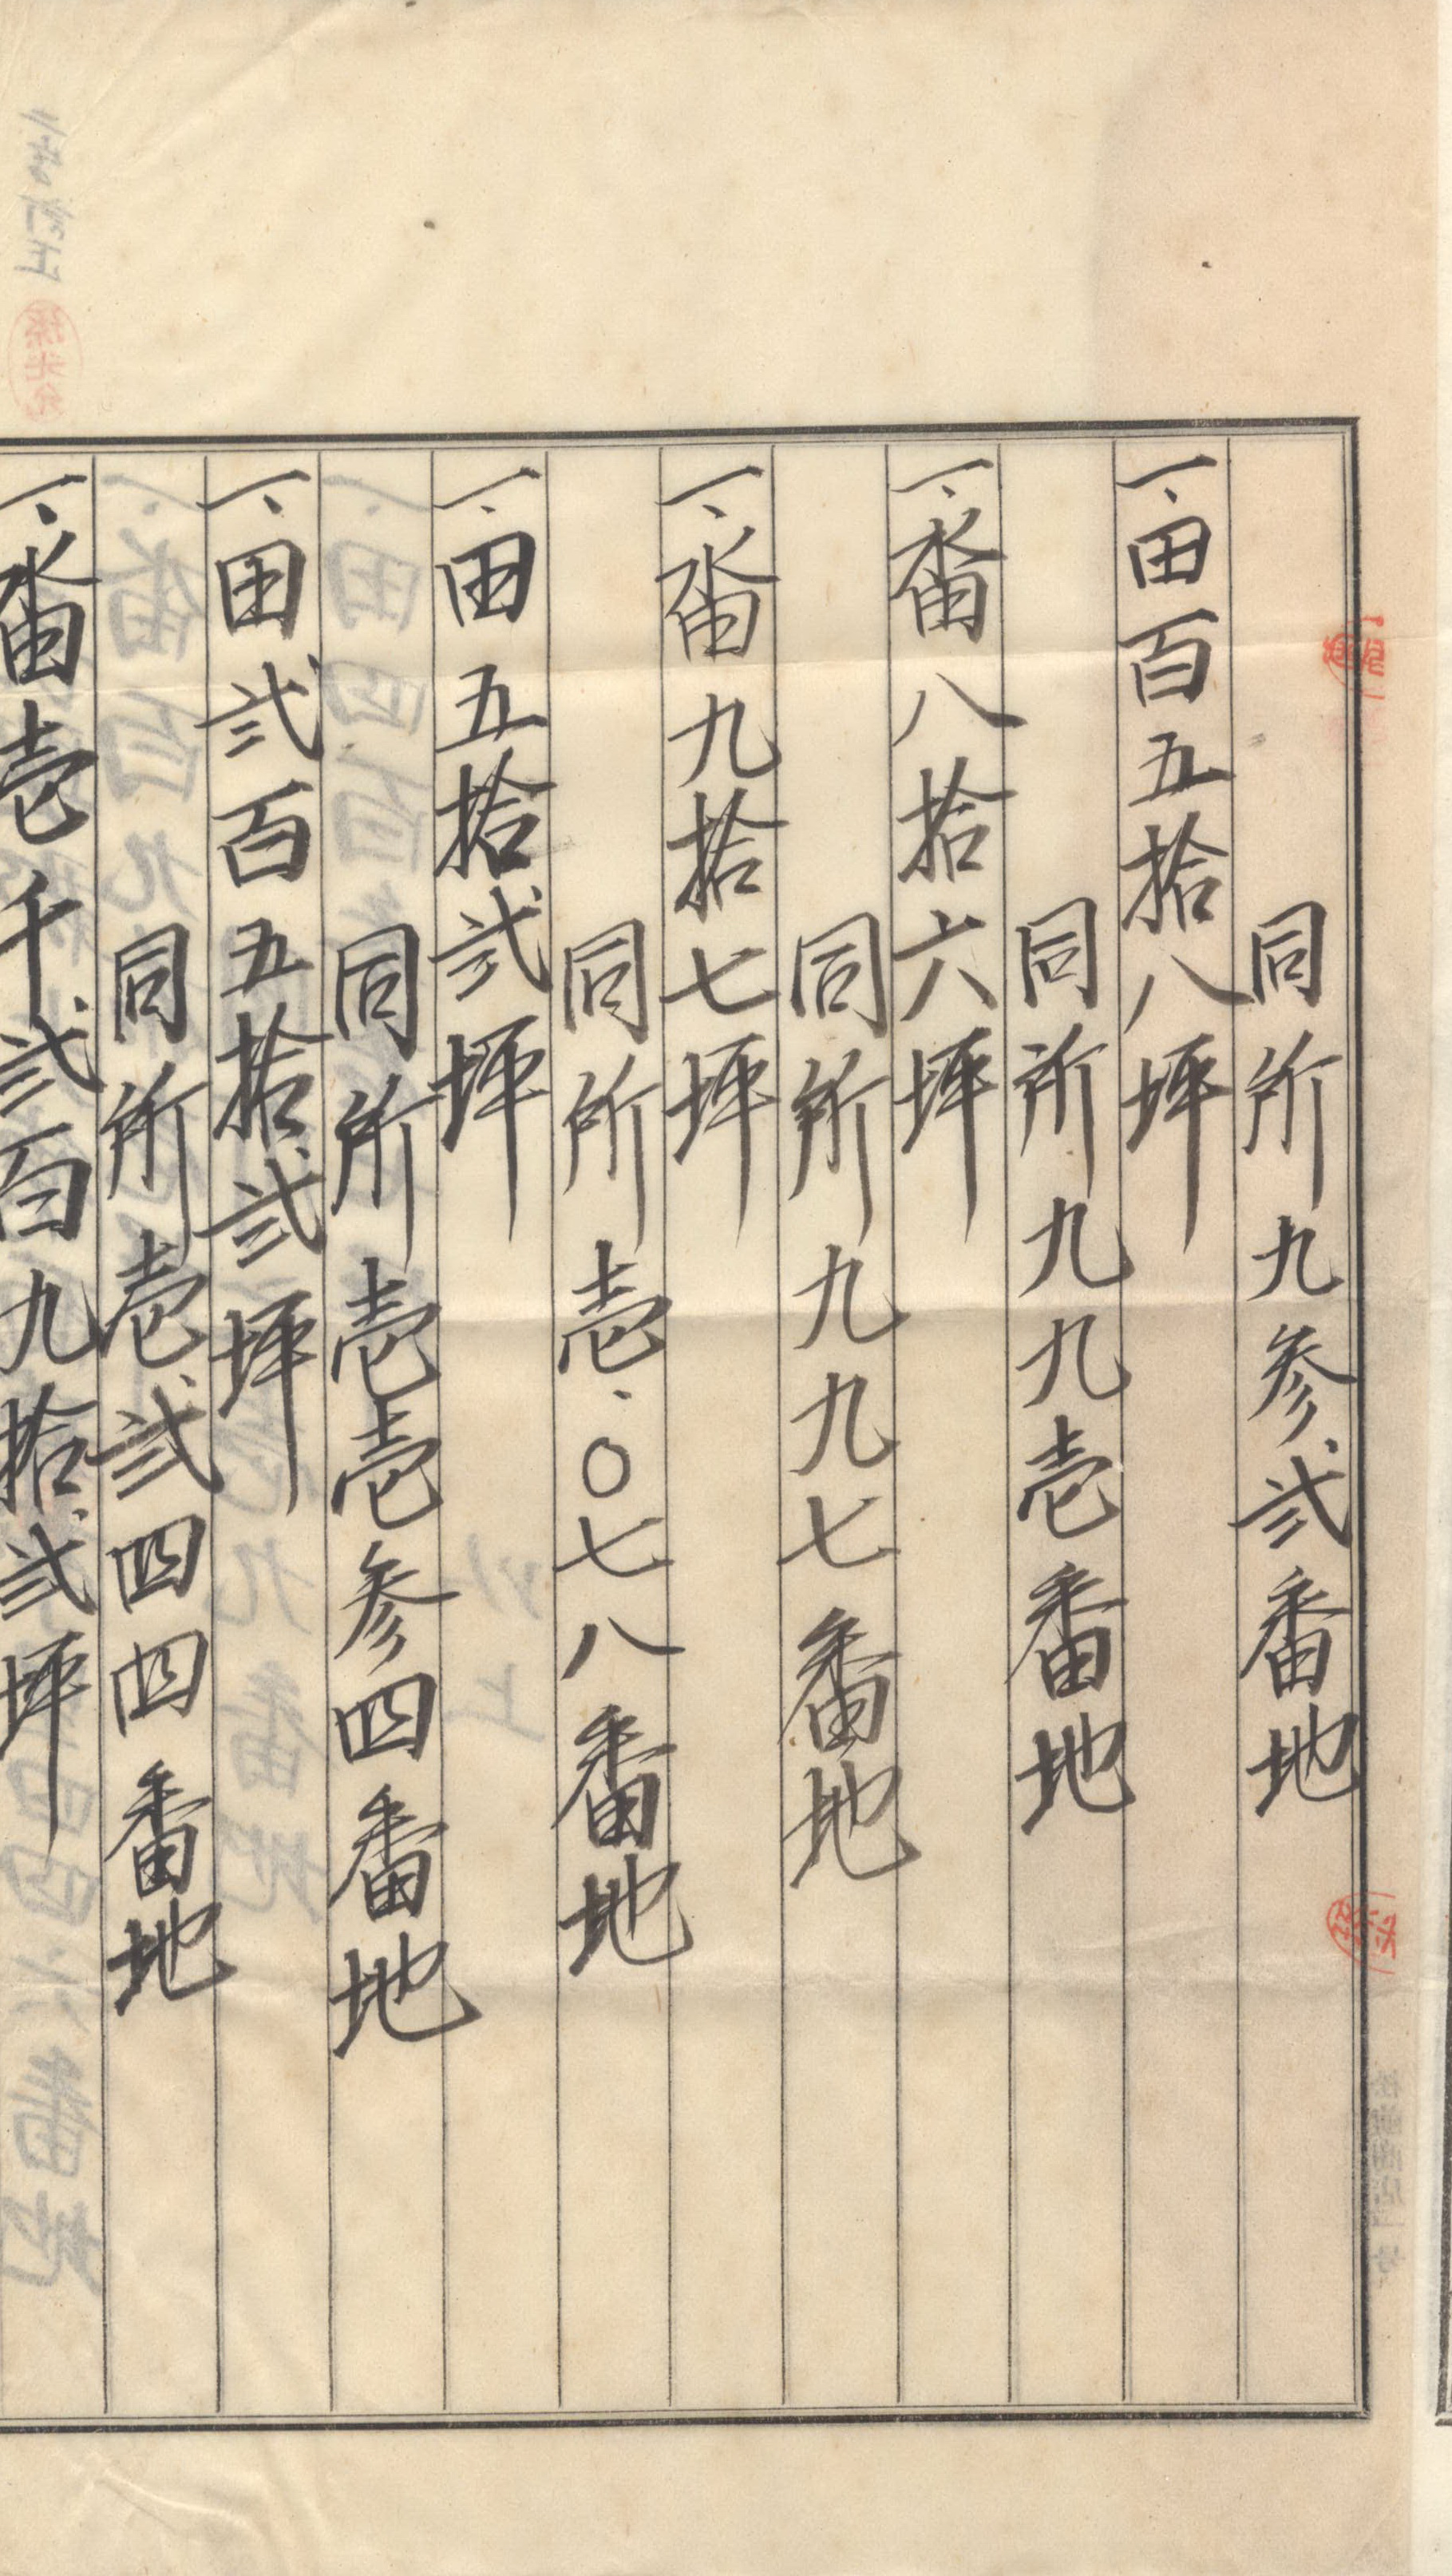 同所九参弐番地
一、田百五拾八坪
同所九九壱番地
一、畓八拾六坪
同所九九七番地
一、畓九拾七坪
同所壱、〇七八番地
一、田五拾弐坪
同所壱壱参四番地
一、田弐百五拾弐坪
同所壱弐四四番地
一、畓壱千弐百九拾弐坪